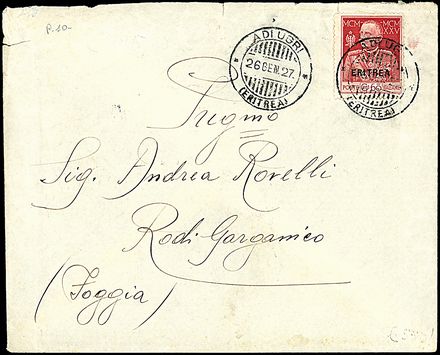 P. 10-
ADI UGRI
26 GEN. 27.
(ERITREA)
MCM MCM
XXV
ADI UG
ERITREA
(ERITREA)
Pregmo
Sig. Andrea Rovelli
Rodi Garganico
(Foggia)